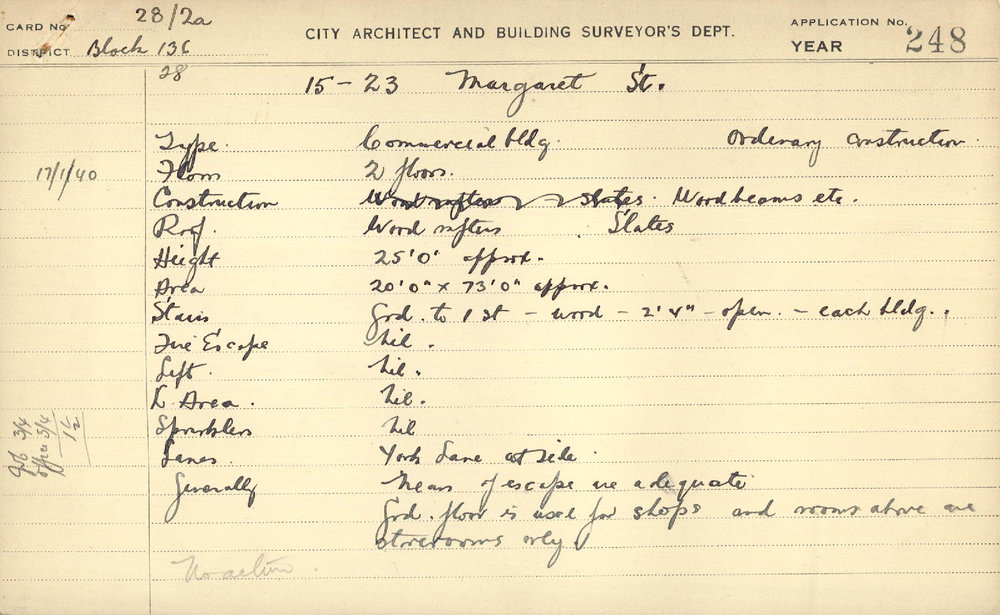 CARD No. 28/2a
CITY ARCHITECT AND BUILDING SURVEYOR'S DEPT.
APPLICATION No.
DISTRICT Block 136
YEAR 248
28
15 - 23 Margaret St.
Type. Commercial bldg. Ordinary construction.
17/1/40
Floors 2 floors.
Construction Wood rafters slates. Wood beams etc.
Roof. Wood rafters Slates
Height 25'0" approx.
Area 20'0" x 73'0" approx.
Stairs Grd. to 1st - wood - 2'4" - open. - each bldg.
Fire Escape Nil.
Lift. Nil.
L. Area. Nil.
Sprinklers Nil
Lanes. York Lane at side.
Generally Means of escape are adequate
Grd. floor is used for shops and rooms above are
storerooms only.
3/4
office 3/4
1 1/2
No action.